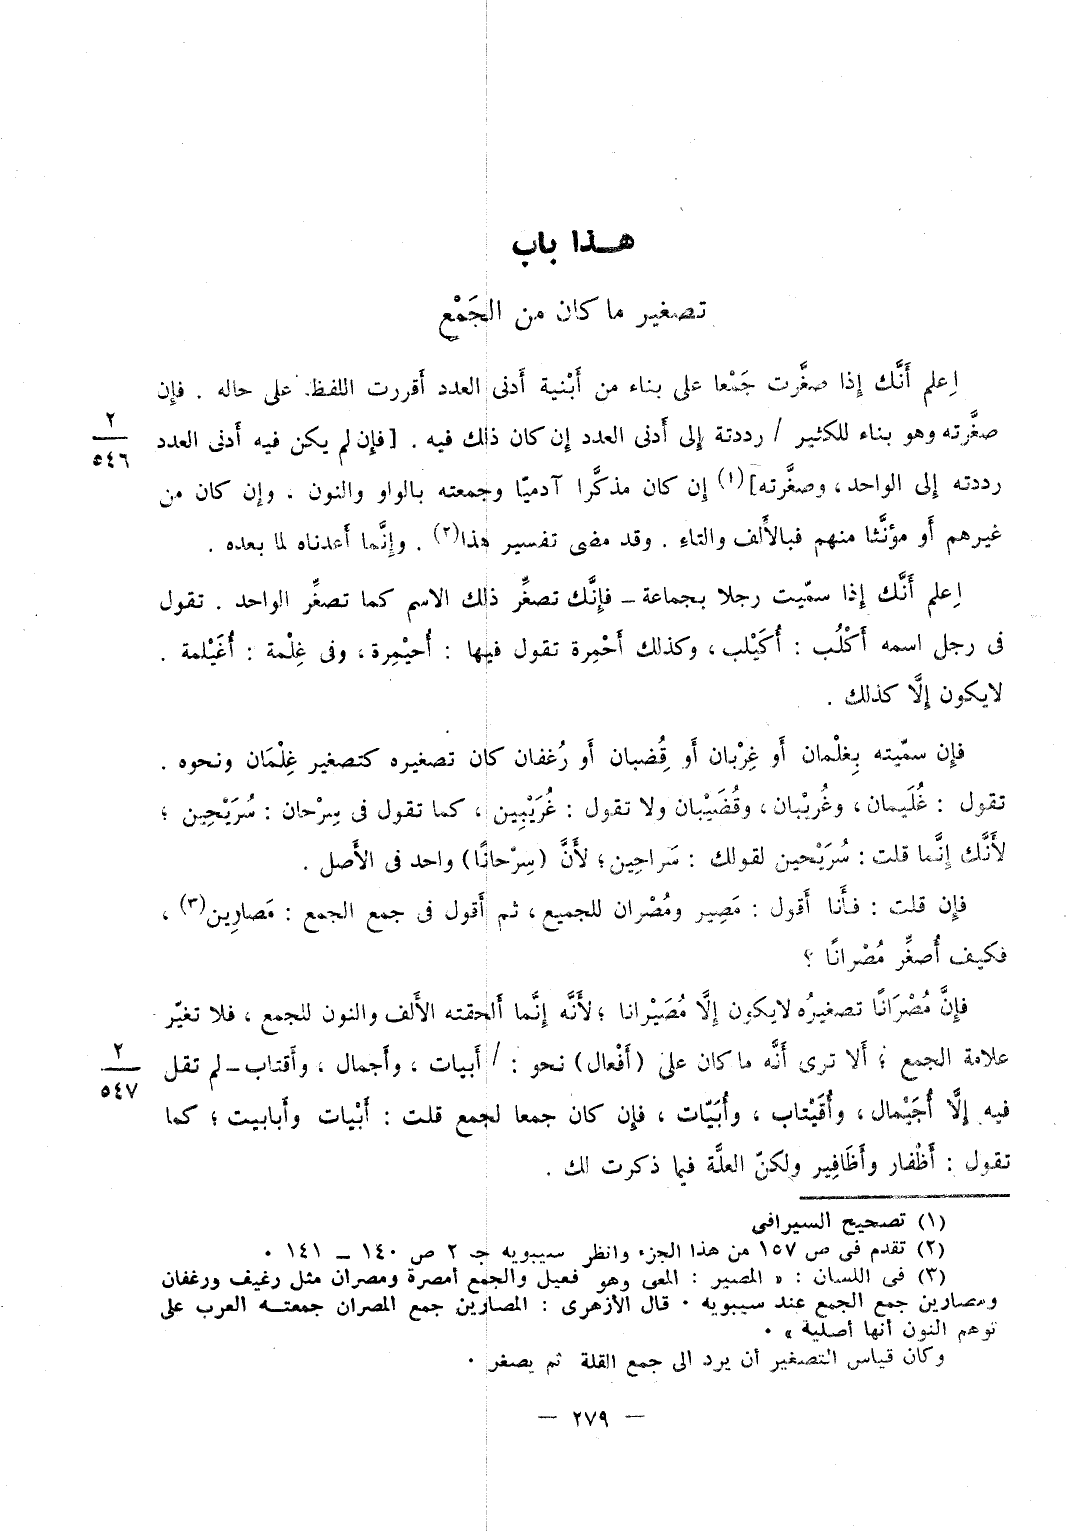 هــذا باب
تصغير ما كان من الجَمْع
اِعلم أَنَّك إِذا صغَّرت جَمْعا على بناء من أَبْنية أَدنى العدد أَقررت اللفظ على حاله . فإِن
صغَّرته وهو بناء للكثير / رددتة إِلى أَدنى العدد إِن كان ذٰلك فيه . [فإِن لم يكن فيه أَدنى العدد
٢
٥٤٦
رددته إِلى الواحد ، وصغَّرته](١) إِن كان مذكَّرا آدميّا وجمعته بالواو والنون . وإِن كان من
غيرهم أَو مؤنَّثا منهم فبالأَلف والتاءِ . وقد مضى تفسير هٰذا(٢) . وإِنَّما أَعدناه لما بعده .
اِعلم أَنَّك إِذا سمّيت رجلا بجماعة – فإِنَّك تصغِّر ذٰلك الاسم كما تصغِّر الواحد . تقول
فى رجل اسمه أَكْلُب : أُكَيْلب ، وكذلك أَحْمِرة تقول فيها : أُحيْمِرة ، وفى غِلْمة : أُغَيْلمة .
لايكون إِلَّا كذلك .
فإِن سمّيته بِغلْمان أَو غِرْبان أَو قِضبان أَو رُغفان كان تصغيره كتصغير غِلْمَان ونحوه .
تقول : غُلَيمان ، وغُريْبان ، وقُضَيْبان ولا تقول : غُرَيْبِين ، كما تقول فى سِرْحان : سُرَيْحِين ؛
لأَنَّك إِنَّما قلت : سُرَيْحين لقولك : سَراحِين ؛ لأَنَّ (سِرْحانًا) واحد فى الأَصل .
فإِن قلت : فأَنا أَقول : مَصِير ومُصْران للجميع ، ثم أَقول فى جمع الجمع : مَصارِين(٣) ،
فكيف أُصغِّر مُصْرانًا ؟
فإِنَّ مُصْرَانًا تصغيرُه لايكون إِلَّا مُصَيْرانا ؛ لأَنَّه إِنَّما أَلحقته الأَلف والنون للجمع ، فلا تغيّر
علامة الجمع ؛ أَلا ترى أَنَّه ما كان على (أَفْعال) نحو : / أَبيات ، وأَجمال ، وأَقتاب – لم تقل
٢
٥٤٧
فيه إِلَّا أُجَيْمال ، وأُقَيْتاب ، وأُبَيّات ، فإِن كان جمعا لجمع قلت : أَبْيات وأَبابيت ؛ كما
تقول : أَظْفار وأَظَافِير ولكنّ العلَّة فيما ذكرت لك .
(١) تصحيح السيرافى
(٢) تقدم فى ص ١٥٧ من هذا الجزء وانظر سيبويه جـ ٢ ص ١٤٠ – ١٤١ .
(٣) فى اللسان : « المصير : المعى وهو فعيل والجمع أمصرة ومصران مثل رغيف ورغفان
ومصارين جمع الجمع عند سيبويه . قال الأزهرى : المصارين جمع المصران جمعتــه العرب على
توهم النون أنها أصلية » .
وكان قياس التصغير أن يرد الى جمع القلة ثم يصغر .
— ٢٧٩ —